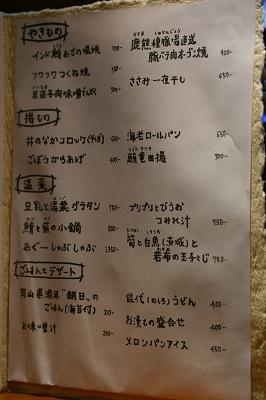 やきもの
インド鮪あごの塩焼 700-
フワフワつくね焼 550-
米茄子肉味噌でんがく 500-
鹿熊種豚場直送
豚バラ肉オーブン焼 900-
ささみ一夜干し 650-
揚もの
井のなかコロッケ
ごぼうからあげ 400-
海老ロールパン 650-
鯖竜田揚 700-
温菜
豆乳と湯葉グラタン 750-
鯖と蕪の小鍋 800-
あぐーしゃぶしゃぶ 1950-
プリプリとびうお
つみれ汁 750-
筍と白魚(茨城)と
若布の玉子とじ 750-
ごはんとデザート
岡山県酒米"朝日"の
ごはん(海苔付) 210-
お味噌汁 300-
能代(のしろ)うどん 400-
お漬もの盛合せ 400-
メロンパンアイス 450-